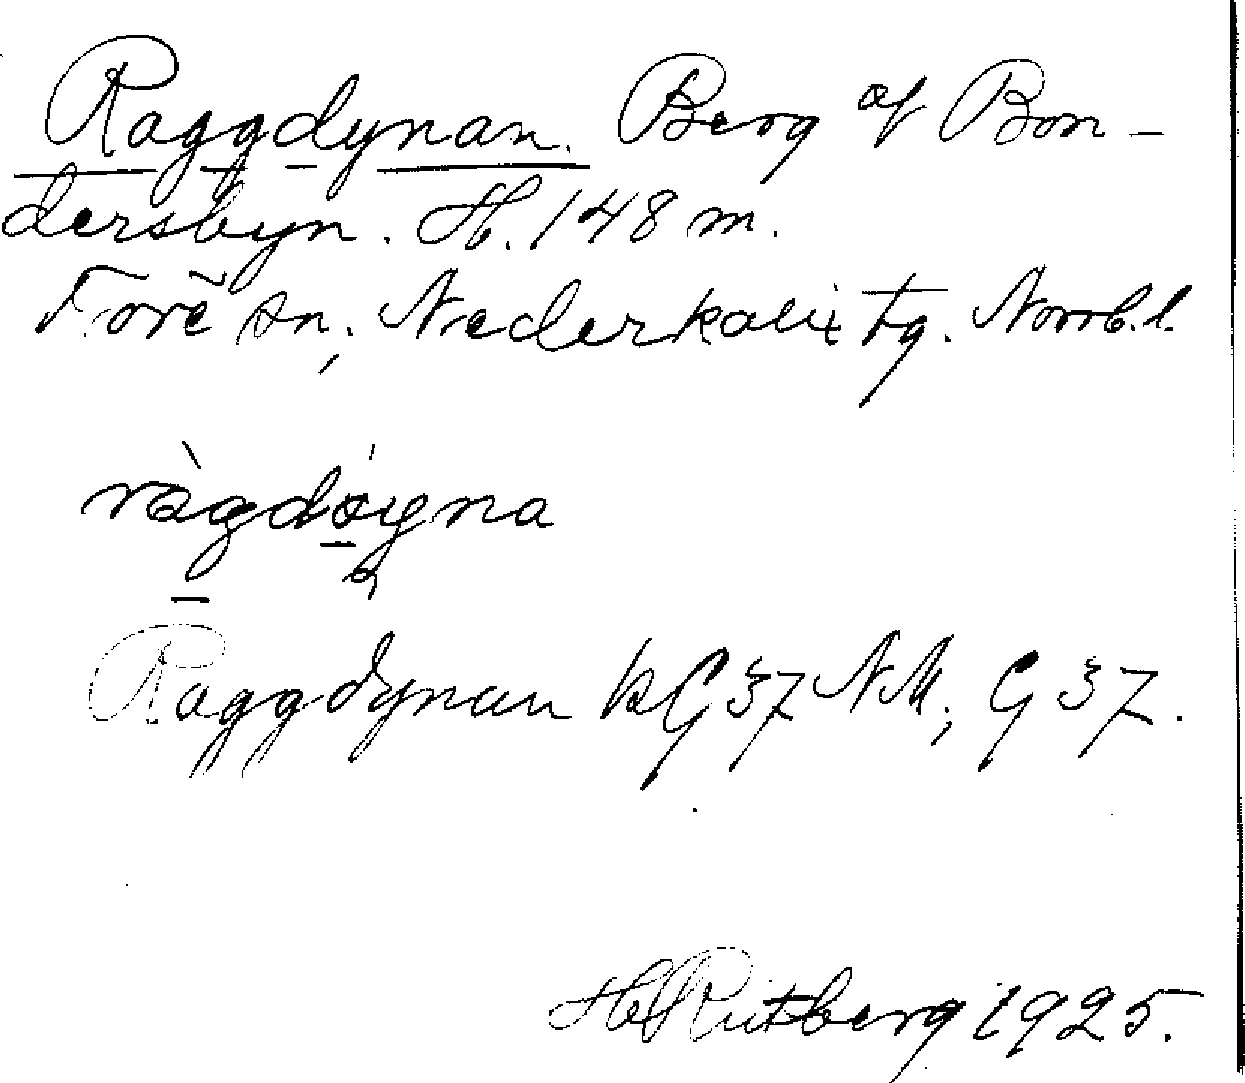 Raggdynan. Berg af Bon-
dersbyn. H. 148 m.
Töre sn, Nederkalix tg. Norrb. l.
ràgdøyna
Raggdynan kG 37 NM, G 37.
H. Rutberg 1925.